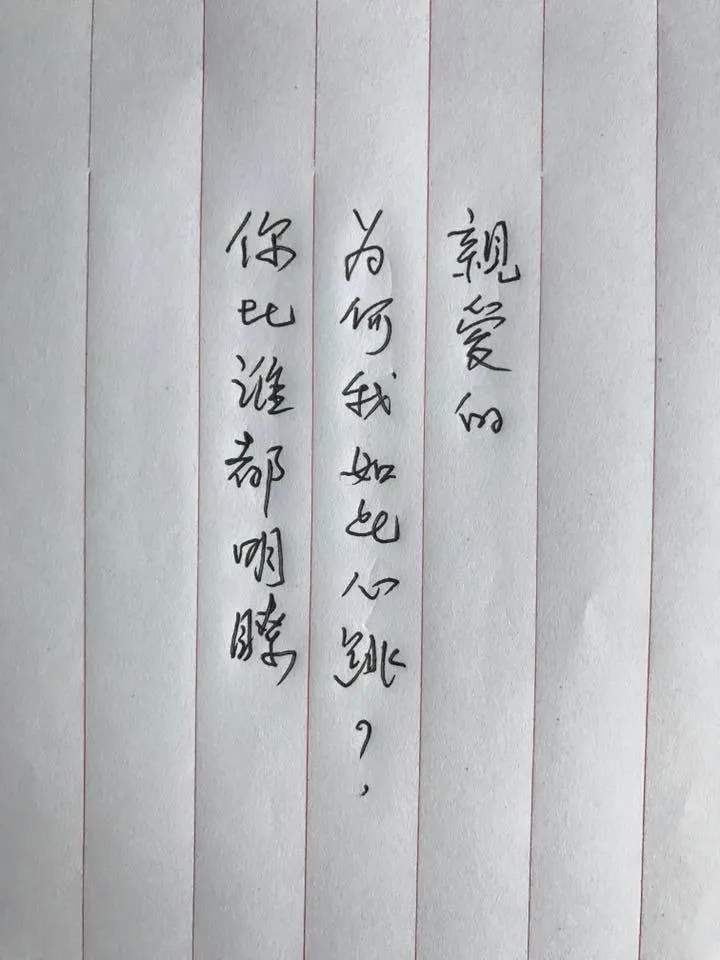 親愛的
为何我如此心跳?
你比谁都明瞭